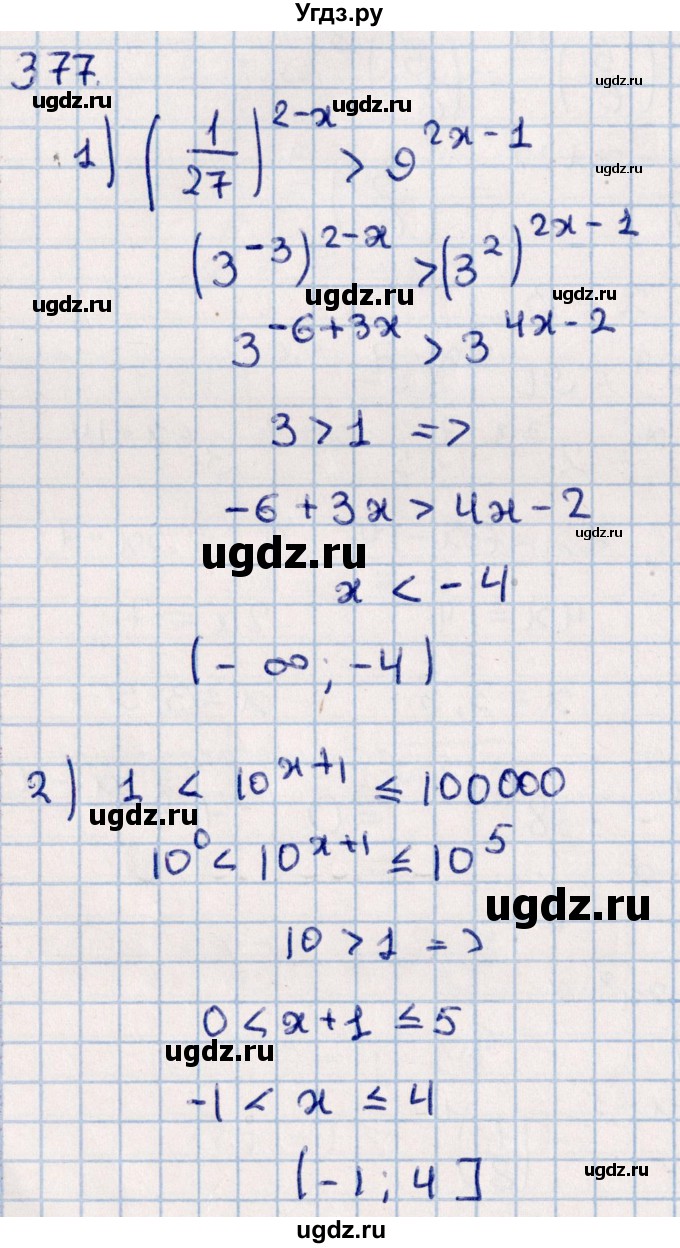 Угдз.ру
377.
ugdz.ru ugdz.ru ugdz.ru
1) (1/27)^(2-x) > 9^(2x-1)
ugdz.ru
(3^(-3))^(2-x) > (3^2)^(2x-1)
ugdz.ru ugdz.ru ugdz.ru
3^(-6+3x) > 3^(4x-2)
3 > 1 =>
-6+3x > 4x-2
ugdz.ru
ugdz.ru
x < -4
(-∞; -4)
2) 1 < 10^(x+1) ≤ 100000
ugdz.ru
10^0 < 10^(x+1) ≤ 10^5
ugdz.ru
10 > 1 =>
0 < x+1 ≤ 5
ugdz.ru
-1 < x ≤ 4
(-1; 4]
ugdz.ru
ugdz.ru